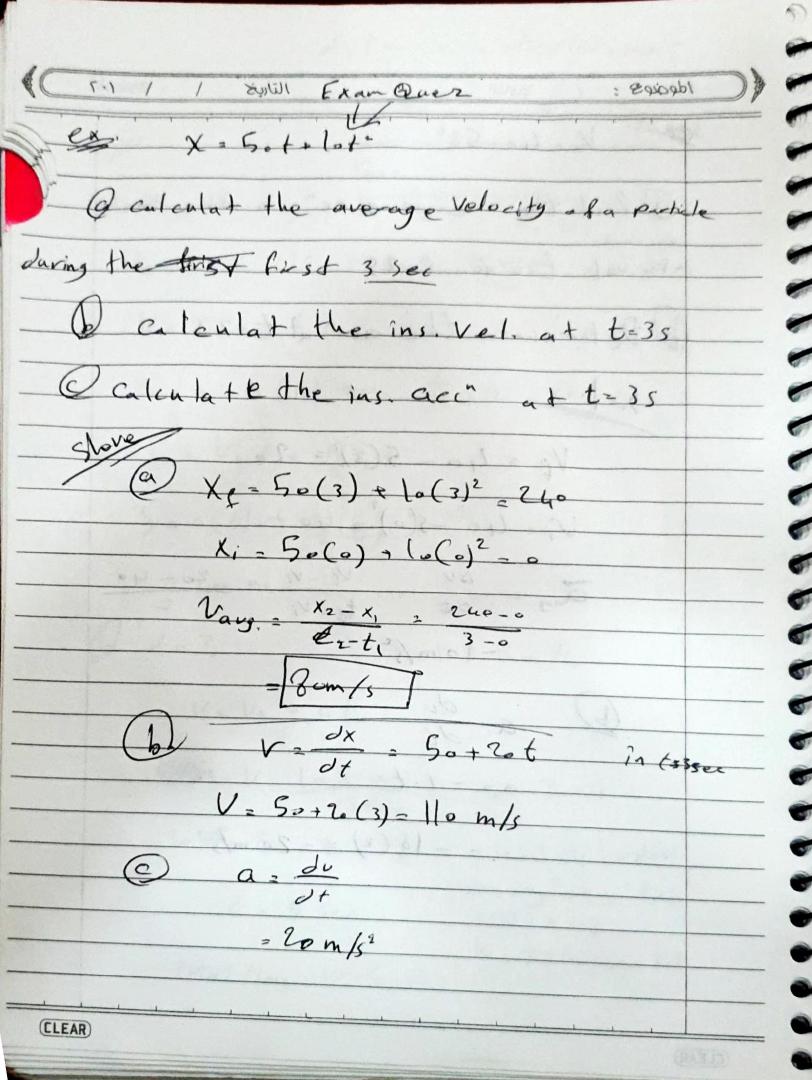 الموضوع : Exam Ques التاريخ / / ٢٠١
ex. x = 50t + 10t²
ⓐ culculat the average velocity of a particle
during the first first 3 sec
ⓑ calculat the ins. vel. at t=3s
ⓒ calculate the ins. accⁿ at t=3s
slove
ⓐ Xf = 50(3) + 10(3)² = 240
Xi = 50(0) + 10(0)² = 0
Vavg. = x₂ - x₁ / t₂ - t₁ = 240 - 0 / 3 - 0
= 80m/s
ⓑ V = dx/dt = 50 + 20t in t=3sec
V = 50 + 20(3) = 110 m/s
ⓒ a = dv/dt
= 20 m/s²
CLEAR